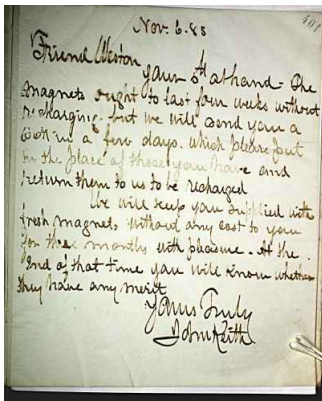 401
Nov. 6. 85
Friend Weston
Yours 5th at hand - The
magnets ought to last four weeks without
recharging. but we will send you a
in a few days. which please put
in the place of those you have and
return them to us to be recharged
We will keep you supplied with
fresh magnets without any cost to you
for three months with pleasure. At the
end of that time you will know whether
they have any merit
Yours Truly
John Keith